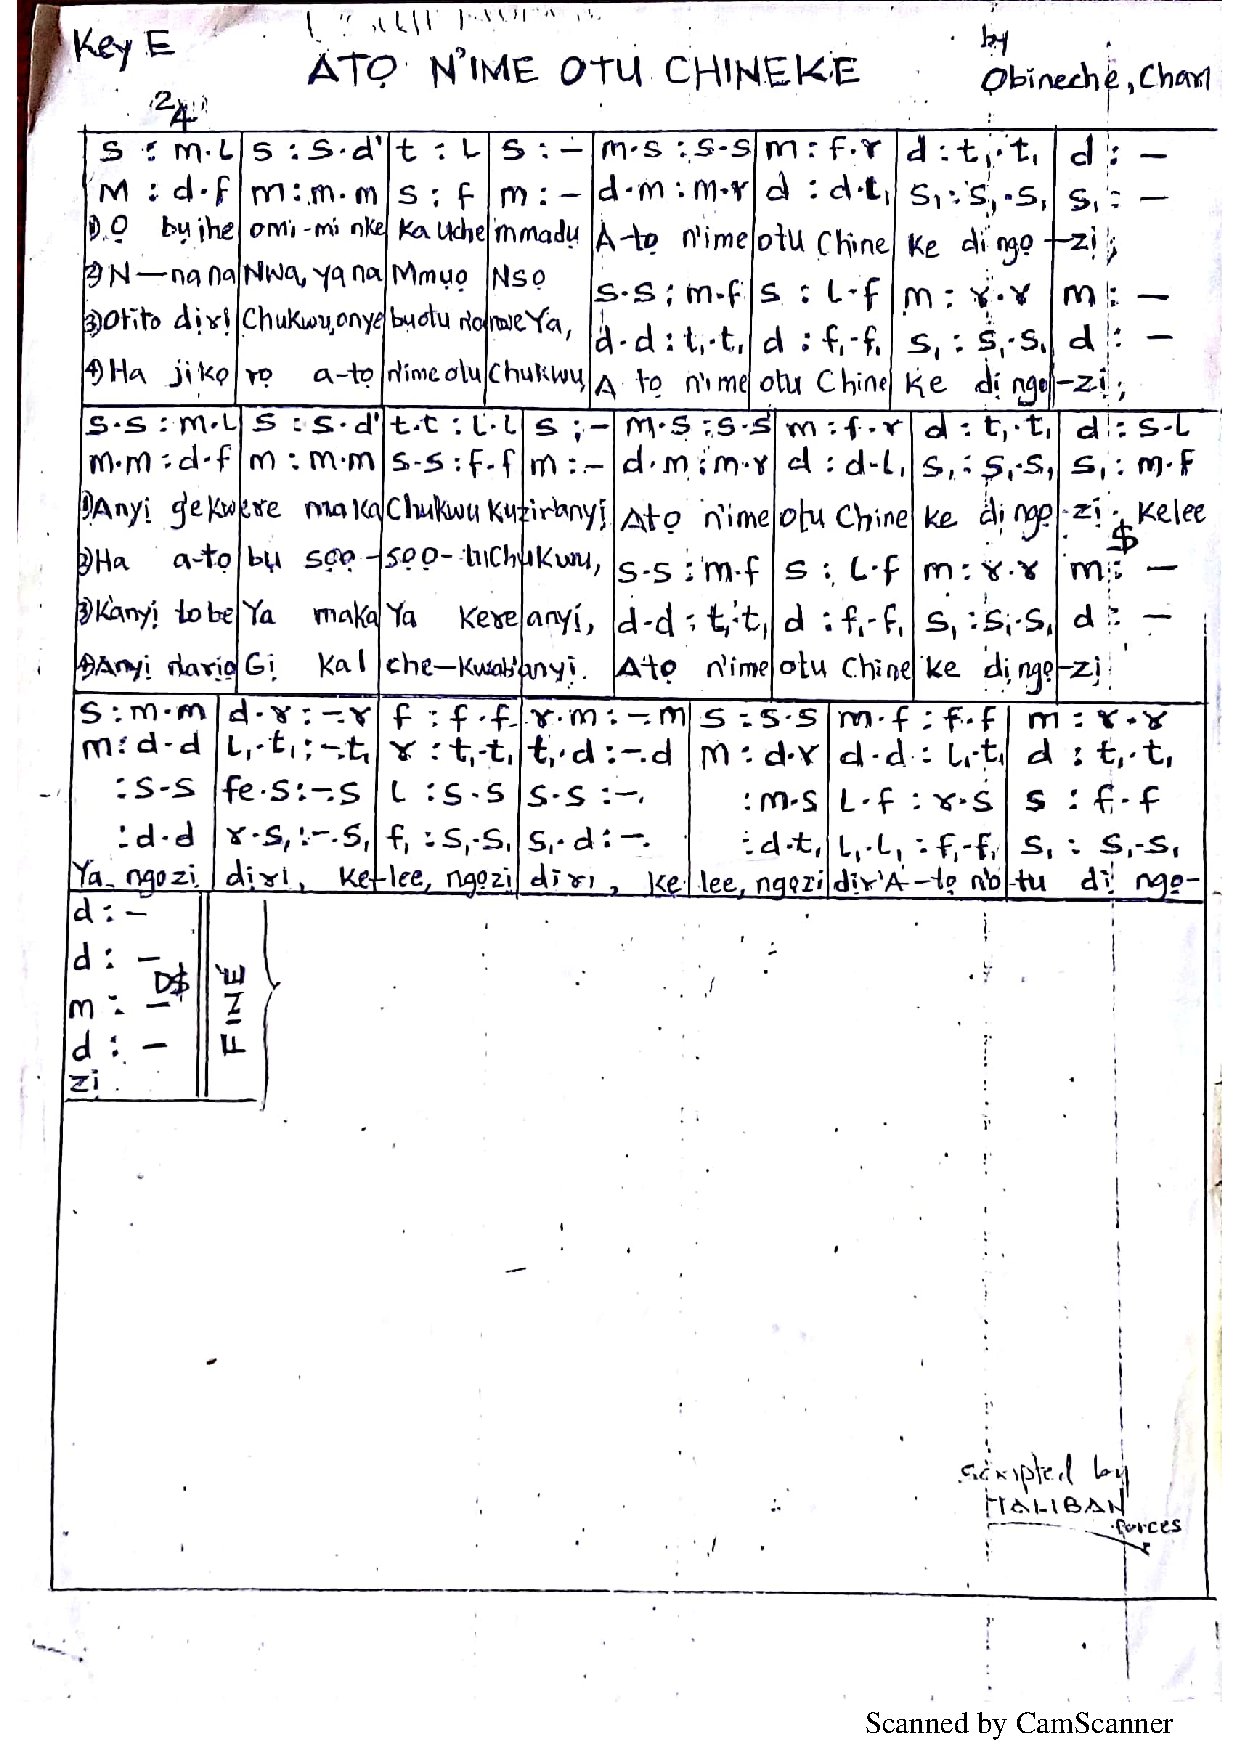 Key E
ATỌ N'IME OTU CHINEKE
by
Obineche, Charl
2/4
s : m.l | s : s.d' | t : l | s : – | m.s : s.s | m : f.r | d : t₁.t₁ | d : –
m : d.f | m : m.m | s : f | m : – | d.m : m.r | d : d.t₁ | s₁ : s₁.s₁ | s₁ : –
1) Ọ bụ ihe | omi-mi nke | ka uche | mmadụ | A-tọ n'ime | otu Chine | ke dị ngọ | -zi;
2) N—na na | Nwa, ya na | Mmụọ | Nsọ
s.s : m.f | s : l.f | m : r.r | m : –
3) Otito dịrị | Chukwu, onye | bụ otu
d.d : t₁.t₁ | d : f₁.f₁ | s₁ : s₁.s₁ | d : –
4) Ha jikọ | rọ a-tọ | n'ime otu | Chukwu, | A tọ n'ime | otu Chine | ke dị ngọ | -zi;
s.s : m.l | s : s.d' | t.t : l.l | s : – | m.s : s.s | m : f.r | d : t₁.t₁ | d : s.l
m.m : d.f | m : m.m | s.s : f.f | m : – | d.m : m.r | d : d.l₁ | s₁ : s₁.s₁ | s₁ : m.f
1) Anyị gekwere maka Chukwu kuziranyị | Atọ n'ime | otu Chine | ke dị ngọ | -zi; Kelee
$
2) Ha a-tọ | bụ sọọ | -sọọ- Chukwu,
s.s : m.f | s : l.f | m : r.r | m : –
3) Kanyị tobe | Ya maka | Ya kere | anyị,
d.d : t₁.t₁ | d : f₁.f₁ | s₁ : s₁.s₁ | d : –
4) Anyị narịọ | Gị ka I | che—kwab'anyị. | Atọ n'ime | otu Chine | ke dị ngọ | -zi
s : m.m | d.r : –.r | f : f.f | r.m : –.m | s : s.s | m.f : f.f | m : r.r
m : d.d | l₁.t₁ : –.t₁ | r : t₁.t₁ | t₁.d : –.d | m : d.r | d.d : l₁.t₁ | d : t₁.t₁
: s.s | fe.s : –.s | l : s.s | s.s : –. | : m.s | l.f : r.s | s : f.f
: d.d | r.s₁ : –.s₁ | f₁ : s₁.s₁ | s₁.d : –. | : d.t₁ | l₁.l₁ : f₁.f₁ | s₁ : s₁.s₁
Ya ngozi | dịrị, ke- | lee, ngozi | dịrị, ke | lee, ngozi | dịr'A-tọ n'o | -tu dị ngọ-
d : –
d : –
D$
m : –
d : –
zi
FINE
scripted by
MALIBAN
forces
Scanned by CamScanner